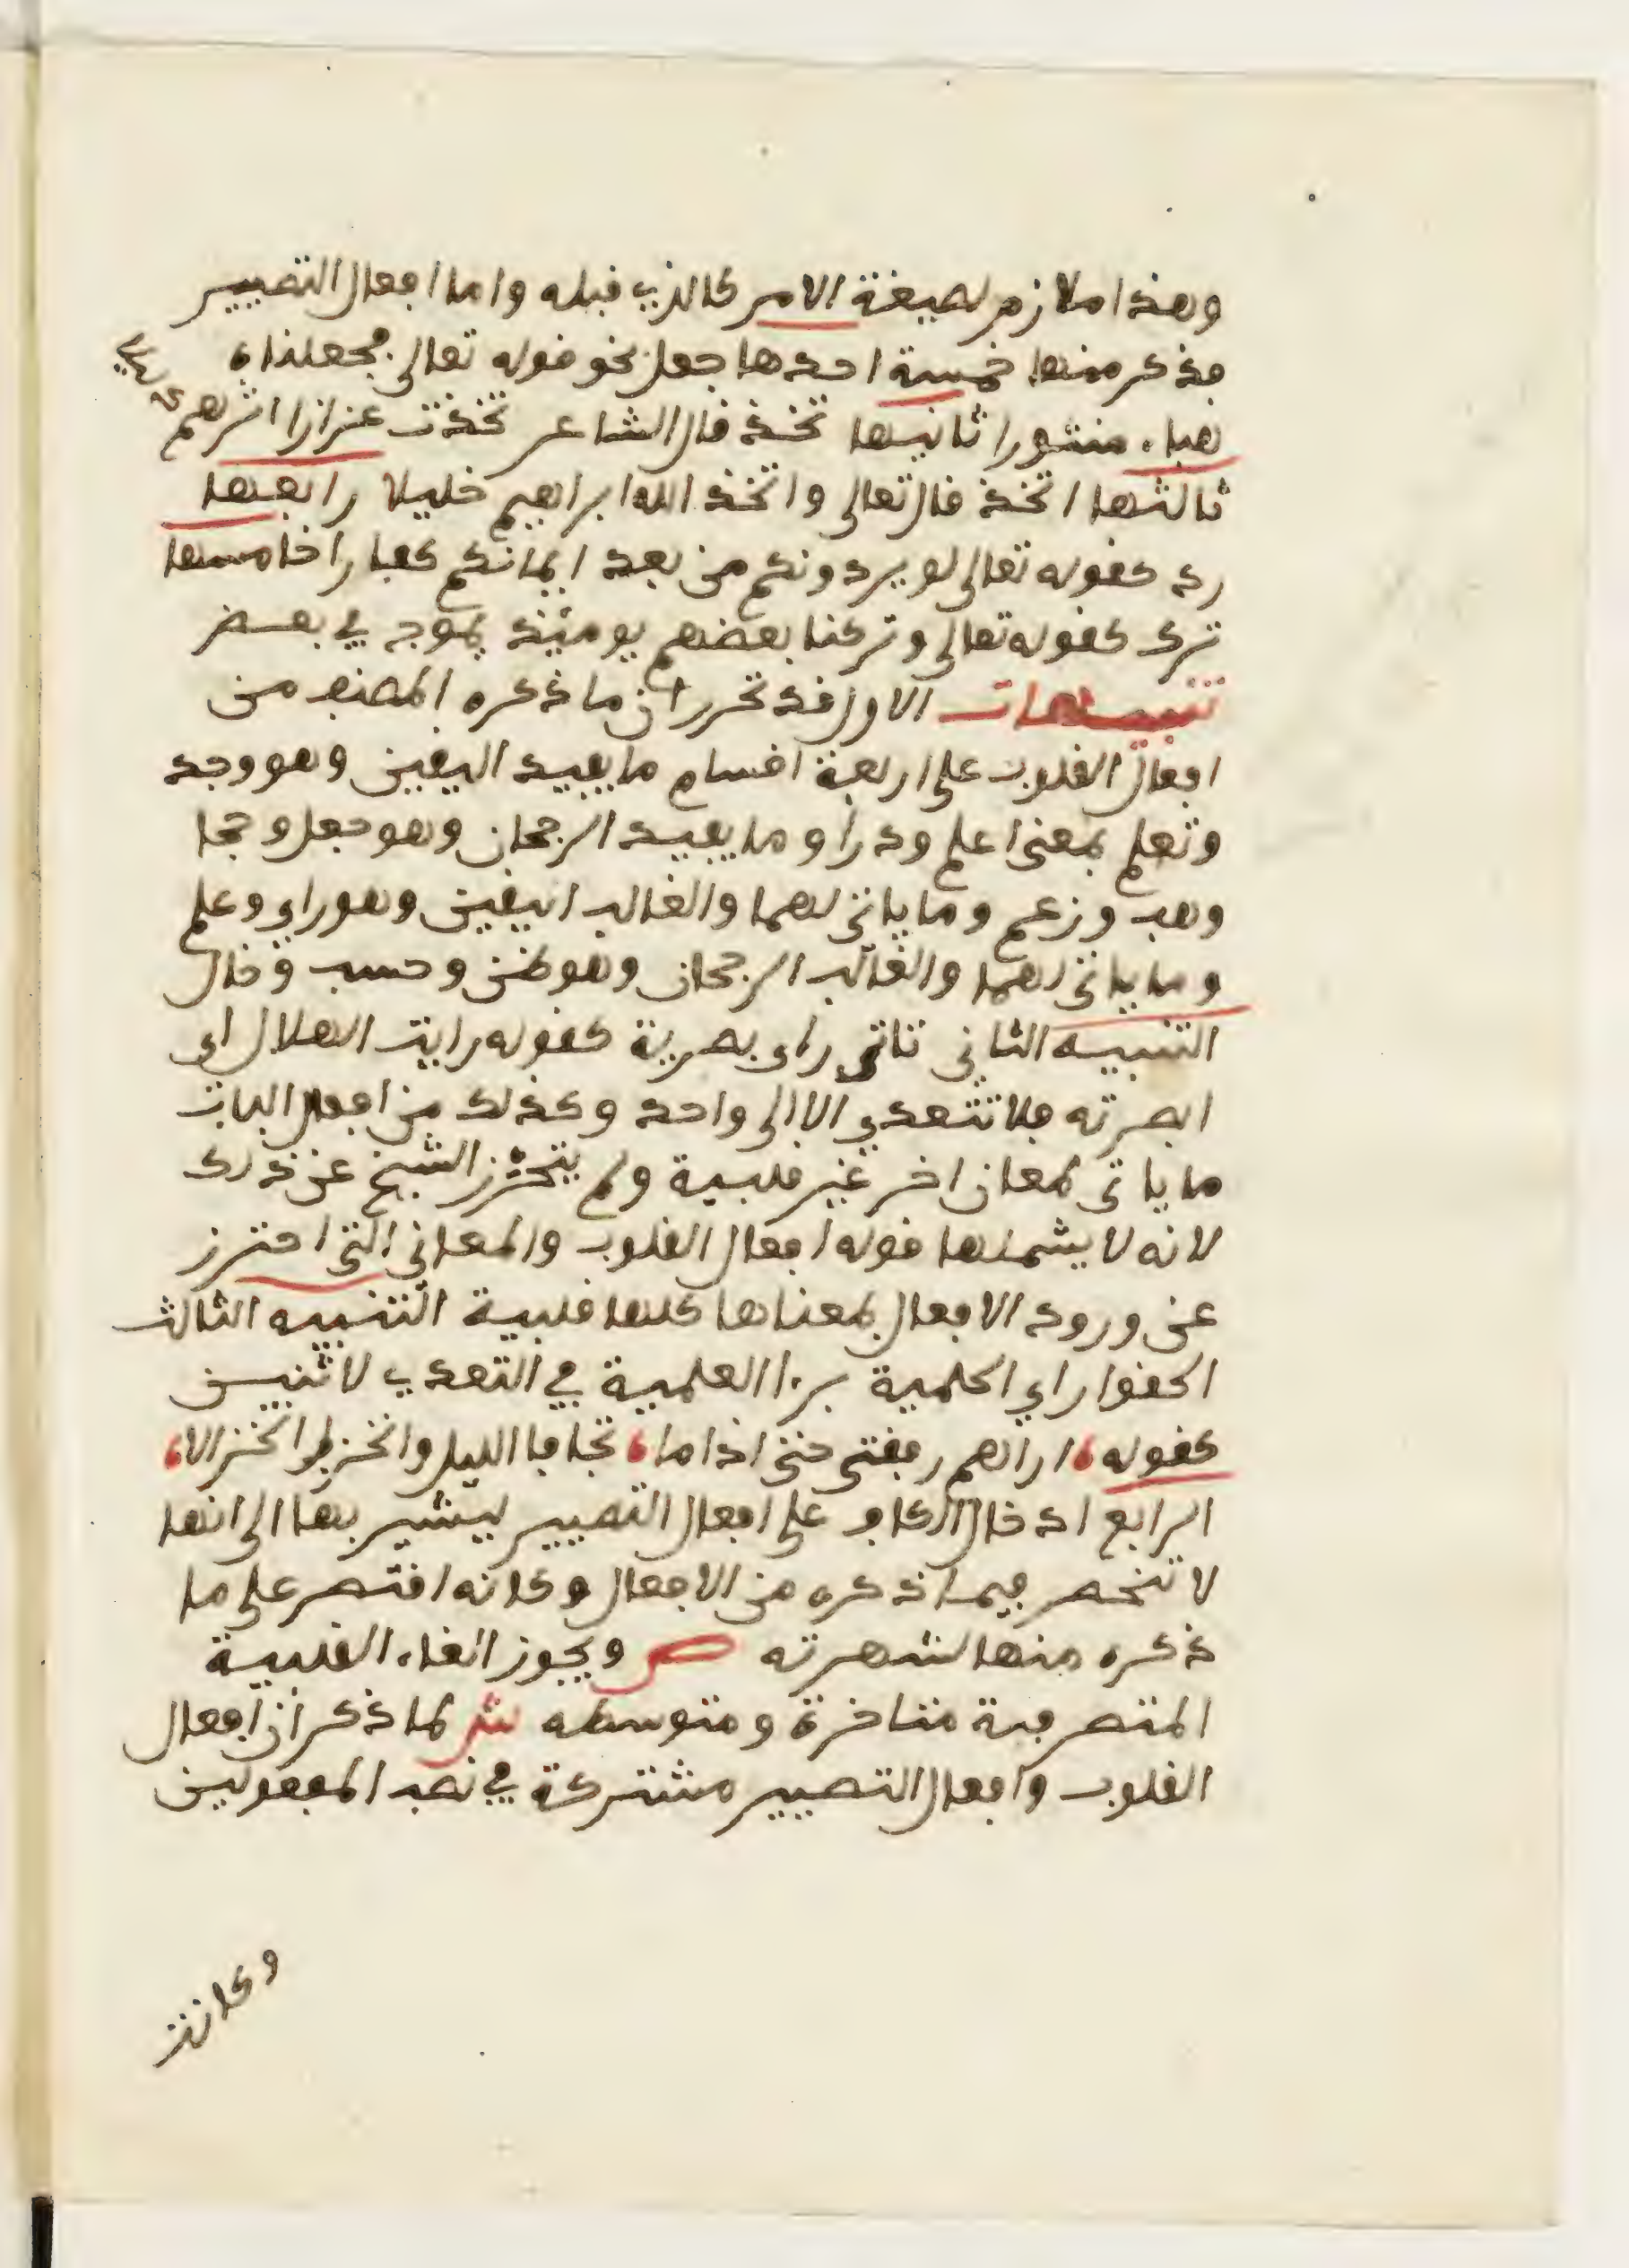 وهذا ملازم لصيغة الامر كالذي قبله واما افعال التصيير
فذكر منها خمسة احدها جعل نحو قوله تعالى فجعلناه
هباء منثورا ثانيها تخذ قال الشاعر تخذت غرازا اثرهم
ثالثها اتخذ قال تعالى واتخذ الله ابراهيم خليلا رابعها
رد كقوله تعالى لو يردونكم من بعد ايمانكم كفارا خامسها
ترك كقوله تعالى وتركنا بعضهم يومئذ يموج في بعض
تنبيهات الاول قد تحرر ان ما ذكره المصنف من
افعال القلوب على اربعة اقسام ما يفيد اليقين وهو وجد
وتعلم بمعنى اعلم ودرا وما يفيد الرجحان وهو جعل وحجا
وهب وزعم وما ياتي لهما والغالب اليقين وهو راي وعلم
وما ياتي لهما والغالب الرجحان وهو ظن وحسب وخال
التنبيه الثاني تاتي راى بصرية كقوله رايت الهلال اي
ابصرته فلا تتعدي الا الى واحد وكذلك من افعال الباب
ما ياتي لمعان اخر غير قلبية ولم يتحرز الشيخ عن ذلك
لانه لا يشملها قوله افعال القلوب والمعاني التي احترز
عن ورود الافعال بمعناها كلها قلبية التنبيه الثالث
الحقوا راي الحلمية برا العلمية في التعدي لاثنين
كقوله، اراهم رفقتي حتى اذا ما، تجافا الليل وانخزل انخزالا،
الرابع ادخال الكاف على افعال التصيير ليشير بها الى انها
لا تنحصر فيما ذكره من الافعال وكانه اقتصر على ما
ذكره منها لشهرته ص ويجوز الغاء القلبية
المتصرفة متاخرة ومتوسطه ش لما ذكر ان افعال
القلوب وافعال التصيير مشتركة في نصب المفعولين
وكانت